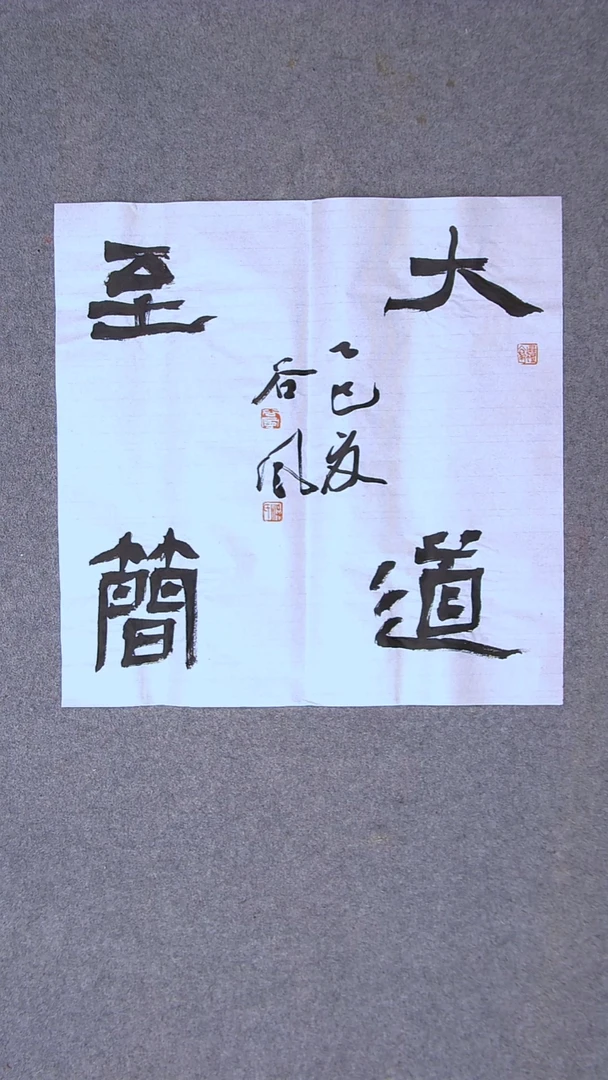 大道
至簡
乙巳夏
谷風